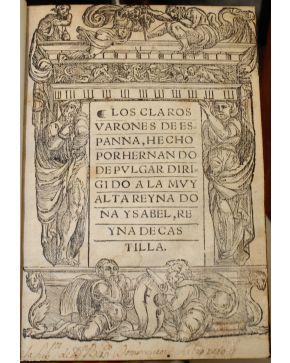 LOS CLAROS
VARONES DE ES-
PANNA, HECHO
POR HERNANDO
DE PVLGAR DIRI-
GIDO A LA MVY
ALTA REYNA DO
NA YSABEL, RE
YNA DE CAS
TILLA.